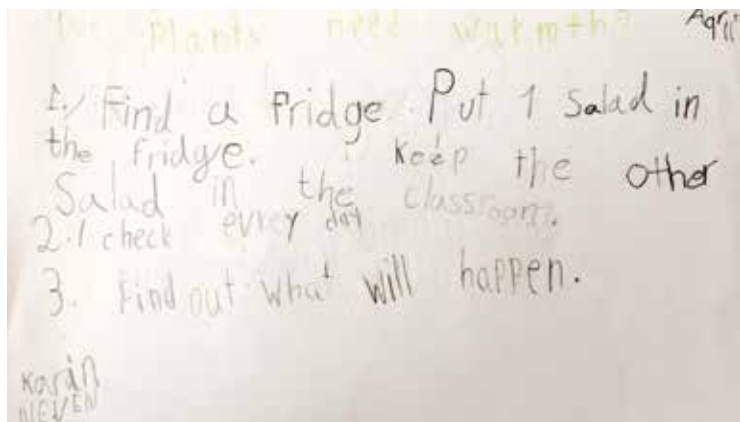 Do plants need warmth? April
1./ Find a fridge. Put 1 Salad in
the fridge. keep the other
Salad in the classroom.
2./ check evrey day
3. Find out what will happen.
Karin
NIEVEN